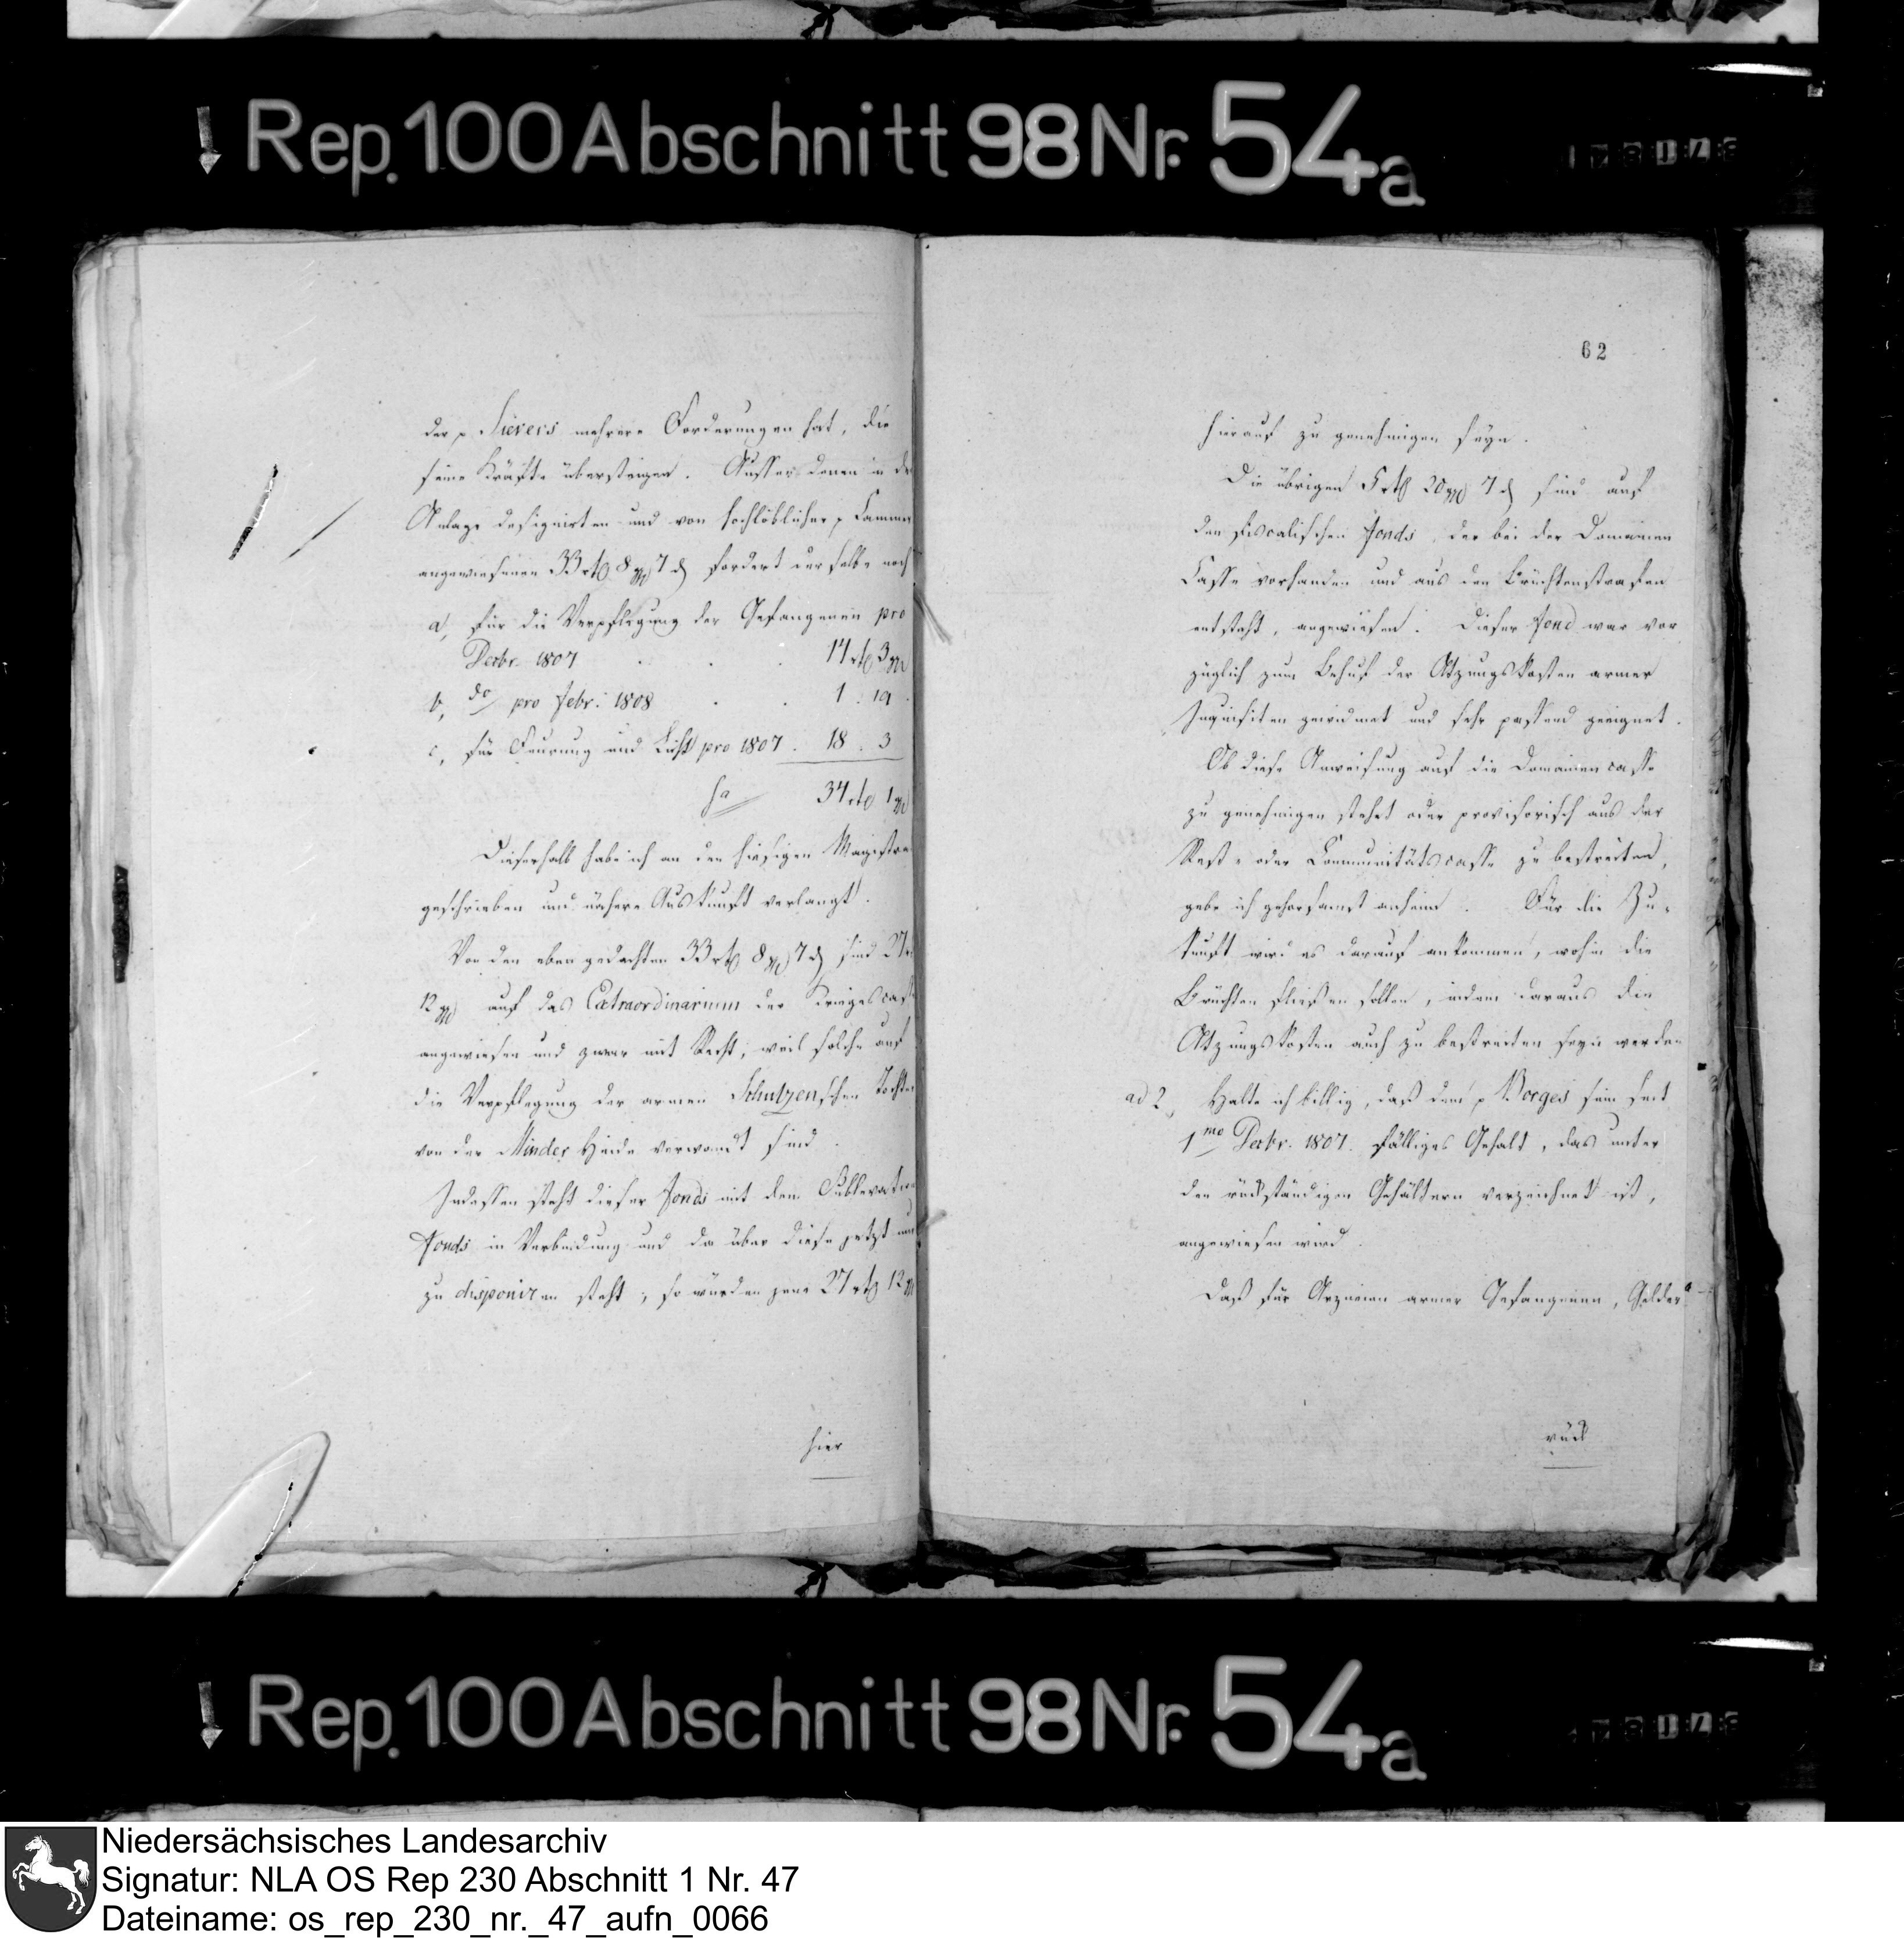 Rep. 100 Abschnitt 98 Nr. 54a
der p Sievers mehrere Forderungen hat, die
seine Kräfte übersteigen. Ausser denen in der
Anlage designirten und von hochlöblicher p Cammer
angewiesenen 33 rtl 8 ggl 7 d fordert derselbe noch
a, für die Verpflegung der Gefangenen pro
Decbr. 1807 . . . 14 rtl 3 ggl
b, do pro Febr. 1808 . . 1 . 19 .
c, für Feurung und Licht pro 1807 . 18 . 3
Sa 34 rtl 1 ggl
Dieserhalb habe ich an den hiesigen Magistrat
geschrieben und nähere Auskunft verlangt.
Von den eben gedachten 33 rtl 8 ggl 7 d sind 27 rtl
12 ggl auf das Extraordinarium der Kriegescasse
angewiesen und zwar mit Recht, weil solche auf
die Verpflegung der armen Schulzenschen Tochter
von der Minder Heide verwandt sind.
Indessen steht dieser Fonds mit dem Sublevations
Fonds in Verbindung und da über diese jetzt nur
zu disponiren steht, so würden jene 27 rtl 12 ggl
hier
62
hierauf zu genehmigen seyn.
Die übrigen 5 rtl 20 ggl 7 d sind auf
den fiscalischen Fonds, der bei der Domainen
Casse vorhanden und aus den Brüchtenstrafen
entsteht, angewiesen. Dieser Fond war vor
züglich zum Behuf der Atzungskosten armer
Inquisiten gewidmet und sehr passend geeignet.
Ob diese Anweisung auf die Domainencasse
zu genehmigen stehet oder provisorisch aus der
Rest- oder Communitätscasse zu bestreiten,
gebe ich gehorsamst anheim. Für die Zu-
kunft wird es darauf ankommen, wohin die
Brüchten fließen sollen, indem daraus die
Atzungskosten auch zu bestreiten seyn werden
ad 2, Halte ich billig, daß dem p Borges sein seit
1mo Decbr. 1807. fälliges Gehalt, das unter
den rückständigen Gehältern verzeichnet ist,
angewiesen wird.
Daß für Arzneien armer Gefangenen, Gelder
rück
Rep. 100 Abschnitt 98 Nr. 54a
Niedersächsisches Landesarchiv
Signatur: NLA OS Rep 230 Abschnitt 1 Nr. 47
Dateiname: os_rep_230_nr._47_aufn_0066